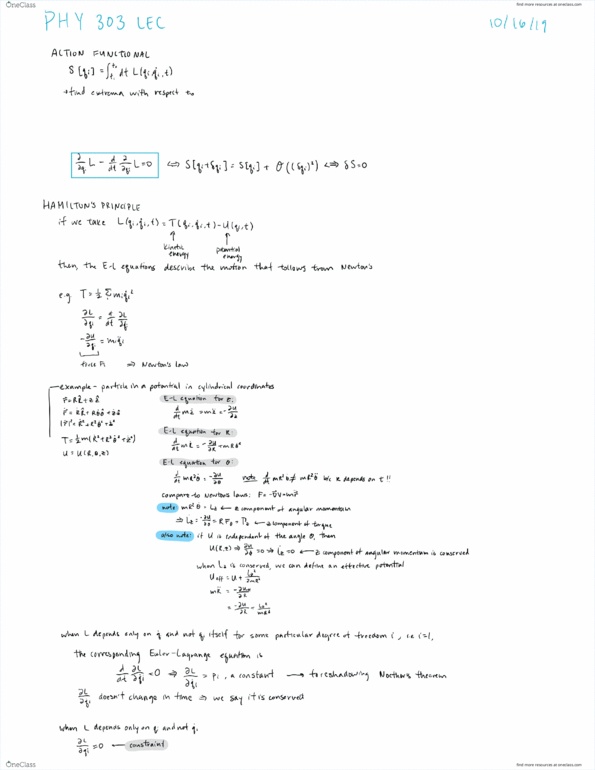 OneClass
find more resources at oneclass.com
PHY 303 LEC
10/16/19
ACTION FUNCTIONAL
S[qi] = ∫ dt L(qi, q̇i, t)
→ find extrema with respect to
∂/∂q L - d/dt ∂/∂q̇ L = 0 ⟺ S[qi+δqi] = S[qi] + O((δqi)²) ⟺ δS=0
HAMILTON'S PRINCIPLE
if we take L(qi, q̇i, t) = T(qi, q̇i, t) - U(qi, t)
kinetic energy
potential energy
then, the E-L equations describe the motion that follows from Newton's
e.g. T = ½ Σ mi q̇i²
∂L/∂qi = d/dt ∂L/∂q̇i
-∂U/∂qi = mi q̈i
force Fi ⇒ Newton's law
example - particle in a potential in cylindrical coordinates
T = ½m(Ṙ² + R²θ̇² + ż²)
U = U(R, θ, z)
E-L equation for z:
d/dt mż = mz̈ = -∂U/∂z
E-L equation for R
d/dt mṘ = -∂U/∂R + mRθ̇²
E-L equation for θ:
d/dt mR²θ̇ = -∂U/∂θ note d/dt mR²θ̇ ≠ mR²θ̈ b/c R depends on t !!
compare to Newton's laws:
note: mR²θ̇ = Lz ← z component of angular momentum
← z component of torque
also note: if U is independent of the angle θ, then
U(R,z) ⇒ ∂U/∂θ = 0 ⇒ L̇z = 0 ← z component of angular momentum is conserved
when Lz is conserved, we can define an effective potential
Ueff = U + Lz²/2mR²
when L depends only on q̇ and not q itself for some particular degree of freedom i, i.e. i=1,
the corresponding Euler-Lagrange equation is
d/dt ∂L/∂q̇i = 0 ⇒ ∂L/∂q̇i = pi, a constant → foreshadowing Noether's theorem
∂L/∂q̇i doesn't change in time ⇒ we say it is conserved
when L depends only on q and not q̇,
∂L/∂qi = 0 ← constraint
OneClass
find more resources at oneclass.com